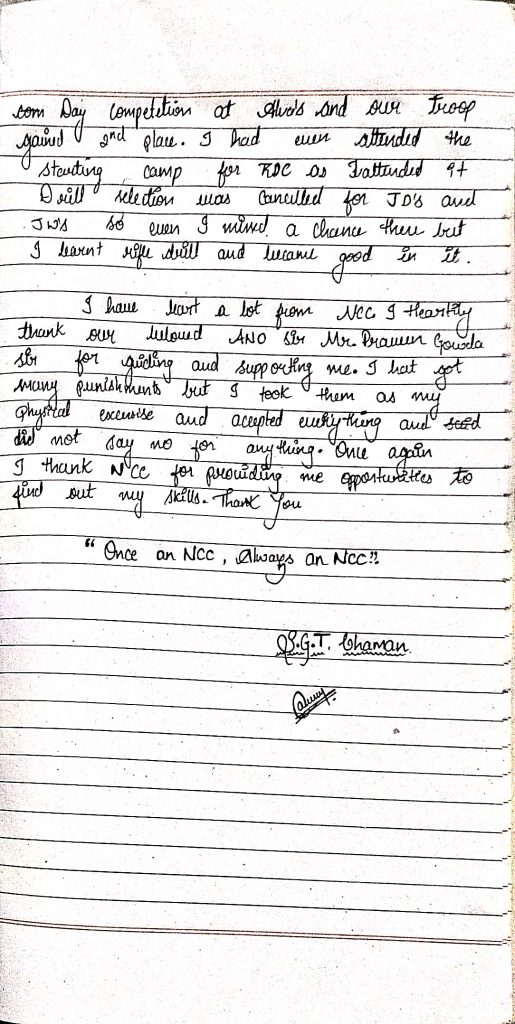 som Day competetion at Alva's and our Troop
gained 2nd place. I had even attended the
starting camp for RDC as I attended it
Drill selection was cancelled for JD's and
JW's so even I missd a chance there but
I learnt rifle drill and became good in it.
I have leart a lot from NCC I Heartily
thank our beloved ANO Sir Mr. Praveen Gowda
sir for guiding and supporting me. I hat got
many punishments but I took them as my
physical excersise and accepted everything and
did not say no for anything. Once again
I thank NCC for providing me opportunities to
find out my skills. Thank You
"Once an NCC, Always an NCC!!
S.G.T. Chaman